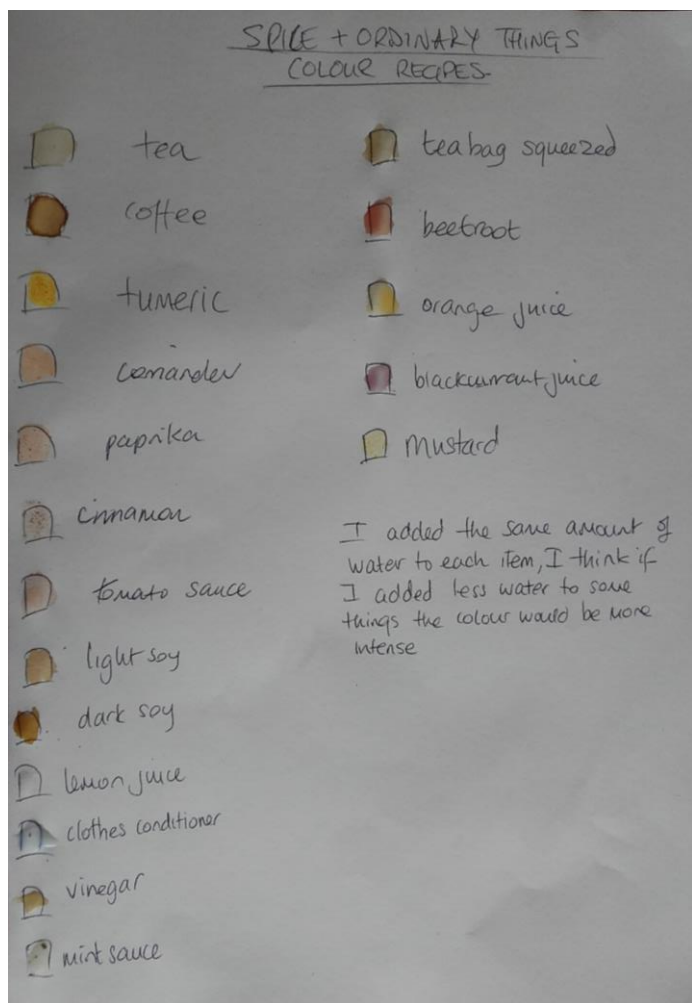 SPICE + ORDINARY THINGS
COLOUR RECIPES.
tea
coffee
tumeric
coriander
paprika
cinnamon
tomato sauce
light soy
dark soy
lemon juice
clothes conditioner
vinegar
mint sauce
tea bag squeezed
beetroot
orange juice
blackcurrant juice
mustard
I added the same amount of
water to each item, I think if
I added less water to some
things the colour would be more
intense